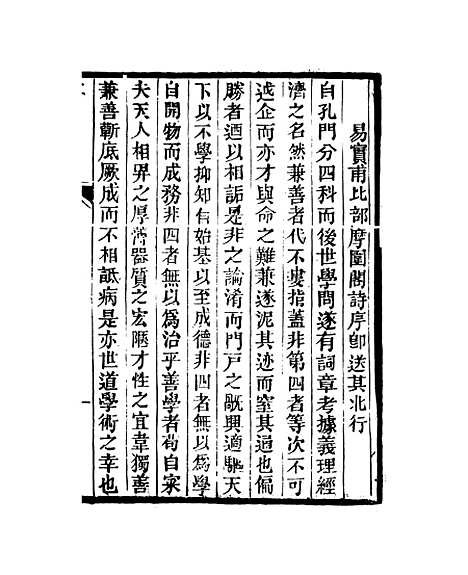 易實甫比部摩圍閣詩序卽送其北行
自孔門分四科而後世學問遂有詞章考據義理經
濟之名然兼善者代不嘍指蓋非第四者等次不可
迖企而亦才與命之難兼遂泥其迹而窒其過也偏
勝者迺以相詬是非之論淆而門戸之戬興適驅天
下以不學抑知有始基以至成德非四者無以爲學
自開物而成務非四者無以爲治乎善學者苟自寀
夫天人相畀之厚薄器質之宏隘才性之宜韋獨善
兼善蘄底厥成而不相詆病是亦世道學術之幸也